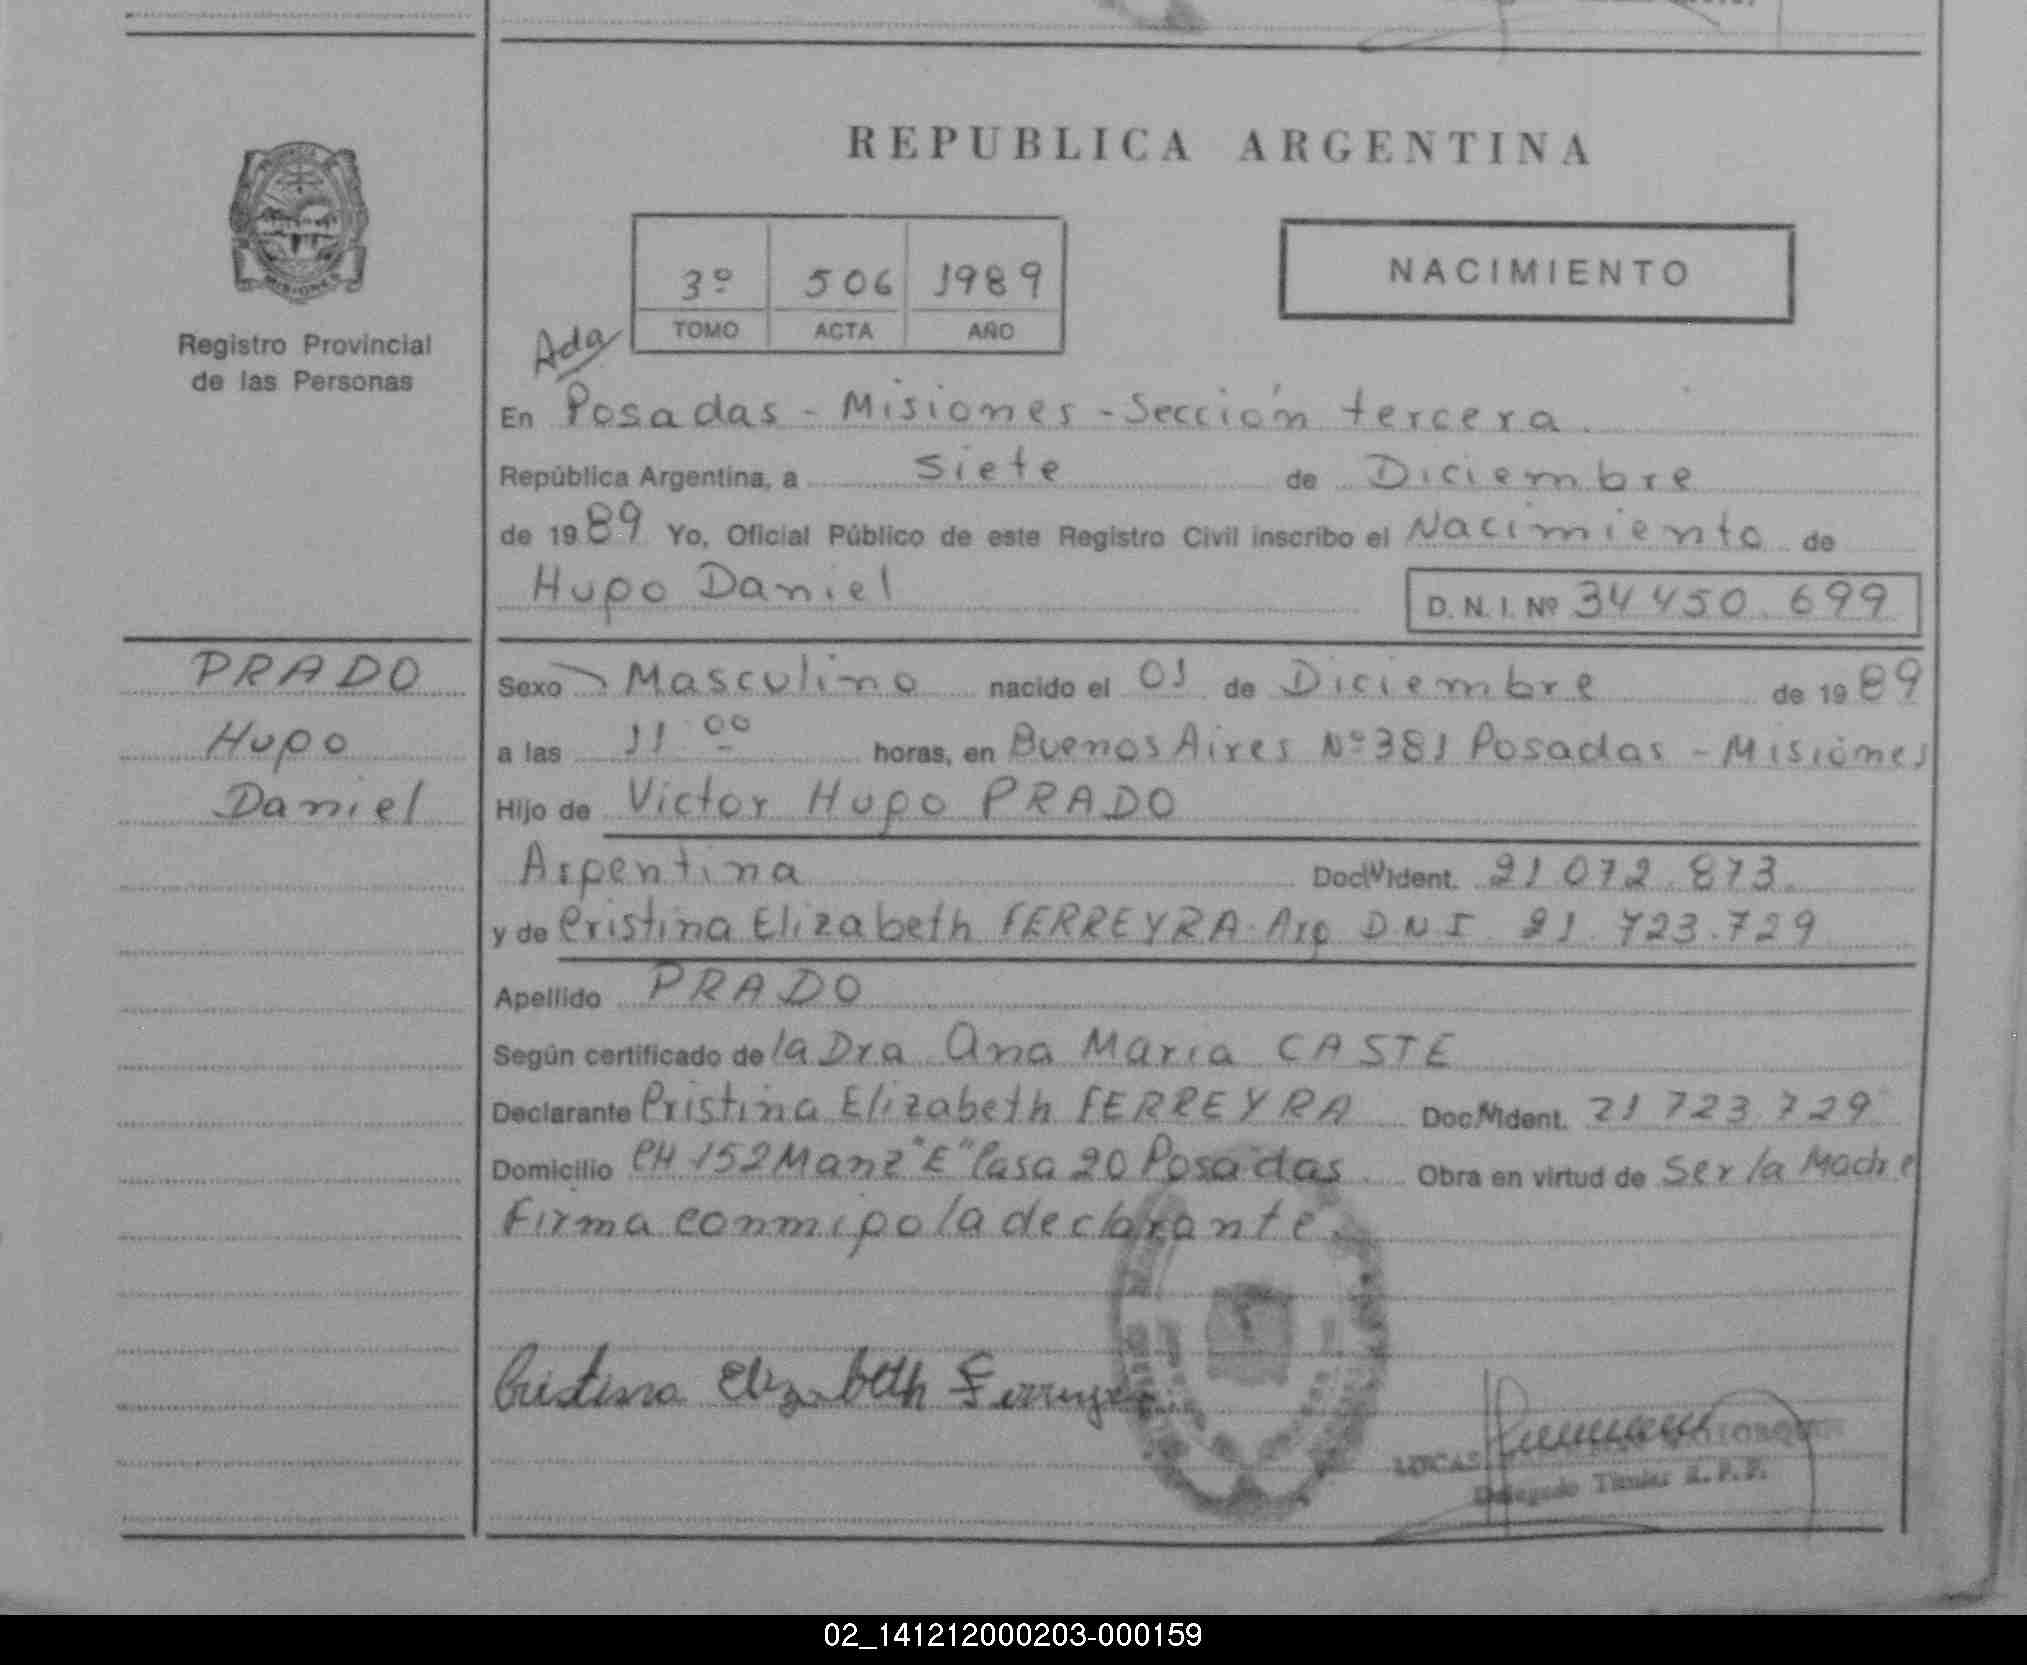 REPUBLICA ARGENTINA
MISIONES
Registro Provincial
de las Personas
3º 506 1989
TOMO ACTA AÑO
NACIMIENTO
Ada
En Posadas - Misiones - Sección tercera
República Argentina, a siete de Diciembre
de 1989 Yo, Oficial Público de este Registro Civil inscribo el Nacimiento de
Hugo Daniel D. N. I. Nº 34 450.699
PRADO
Hugo
Daniel
Sexo Masculino nacido el 01 de Diciembre de 1989
a las 11 00 horas, en Buenos Aires Nº 381 Posadas - Misiones
Hijo de Victor Hugo PRADO
Argentina Doc. Ident. 21 072.873.
y de Cristina Elizabeth FERREYRA. Arg D N I 21.723.729
Apellido PRADO
Según certificado de la Dra Ana Maria CASTE
Declarante Cristina Elizabeth FERREYRA Doc. Ident. 21 723 729
Domicilio CH 152 Manz "E" Casa 20 Posadas Obra en virtud de Ser la Madre
Firma conmigo la declarante.
Cristina Elizabeth Ferreyra
LUCAS
Delegado Titular R.P.P.
02_141212000203-000159